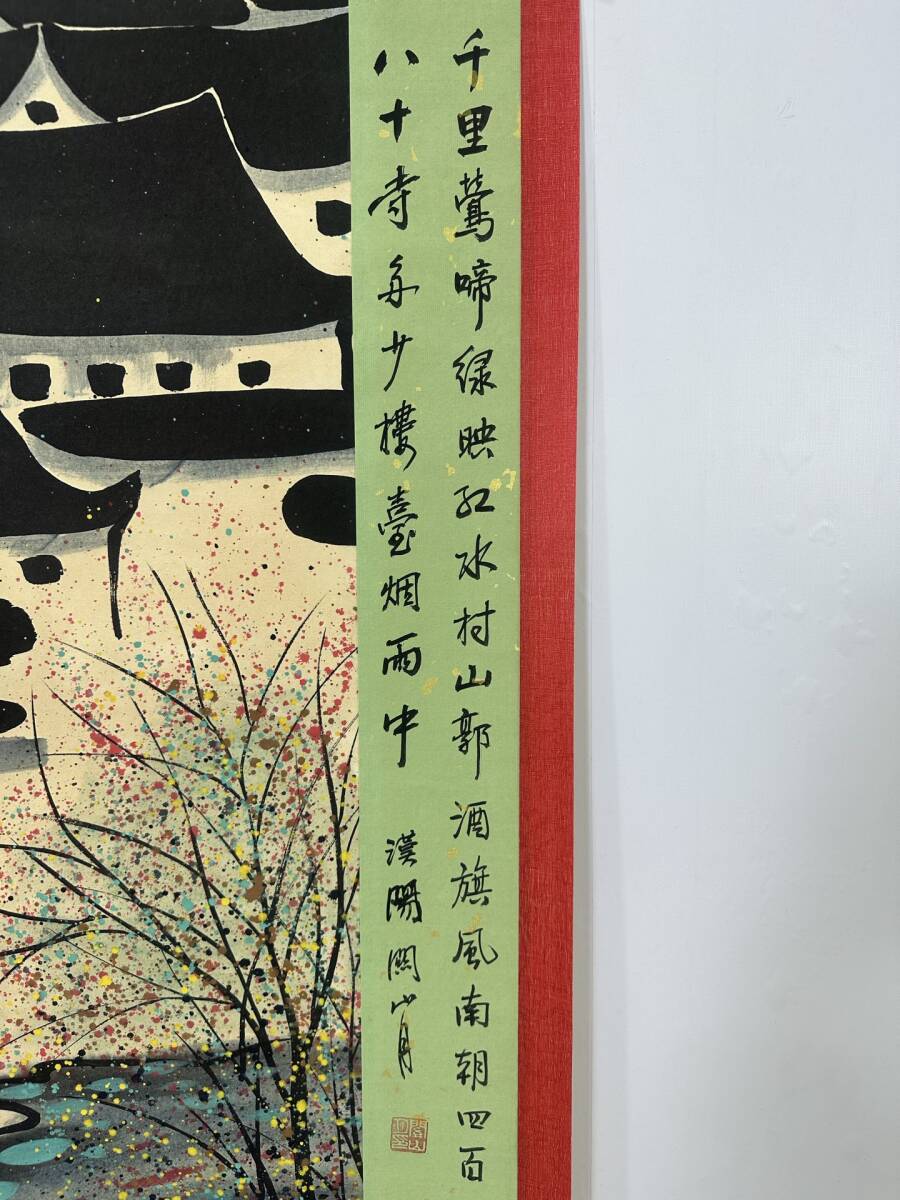 千里莺啼緑映红水村山郭酒旗風南朝四百
八十寺多少樓臺烟雨中
漢陽關山月